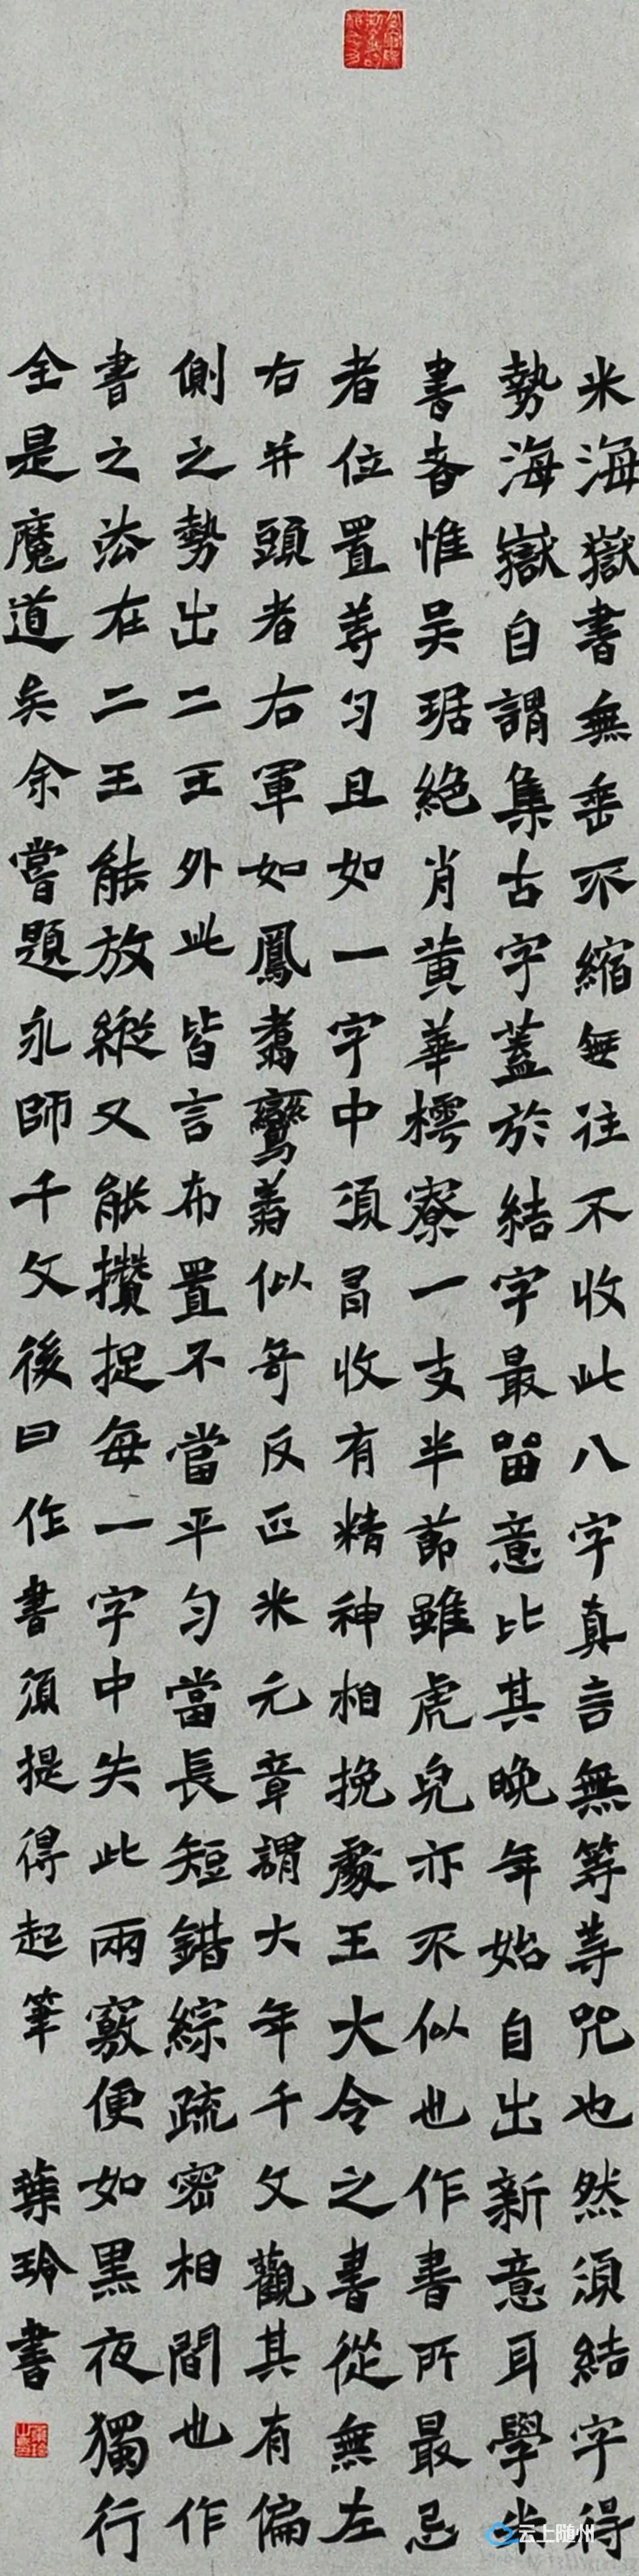 米海嶽書無垂不縮無往不收此八字真言無等等咒也然須結字得
勢海嶽自謂集古字蓋於結字最留意比其晚年始自出新意耳學米
書者惟吳琚絕肖黃華樗寮一支半節雖虎兒亦不似也作書所最忌
者位置等勻且如一字中須冐收有精神相挽處王大令之書從無左
右并頭者右軍如鳳翥鸞翥似奇反正米元章謂大年千文觀其有偏
側之勢出二王外此皆言布置不當平勻當長短錯綜疏密相間也作
書之法在二王能放縱又能攢捉每一字中失此兩竅便如黑夜獨行
全是魔道矣余嘗題永師千文後曰作書須提得起筆 葉玲書
云上随州